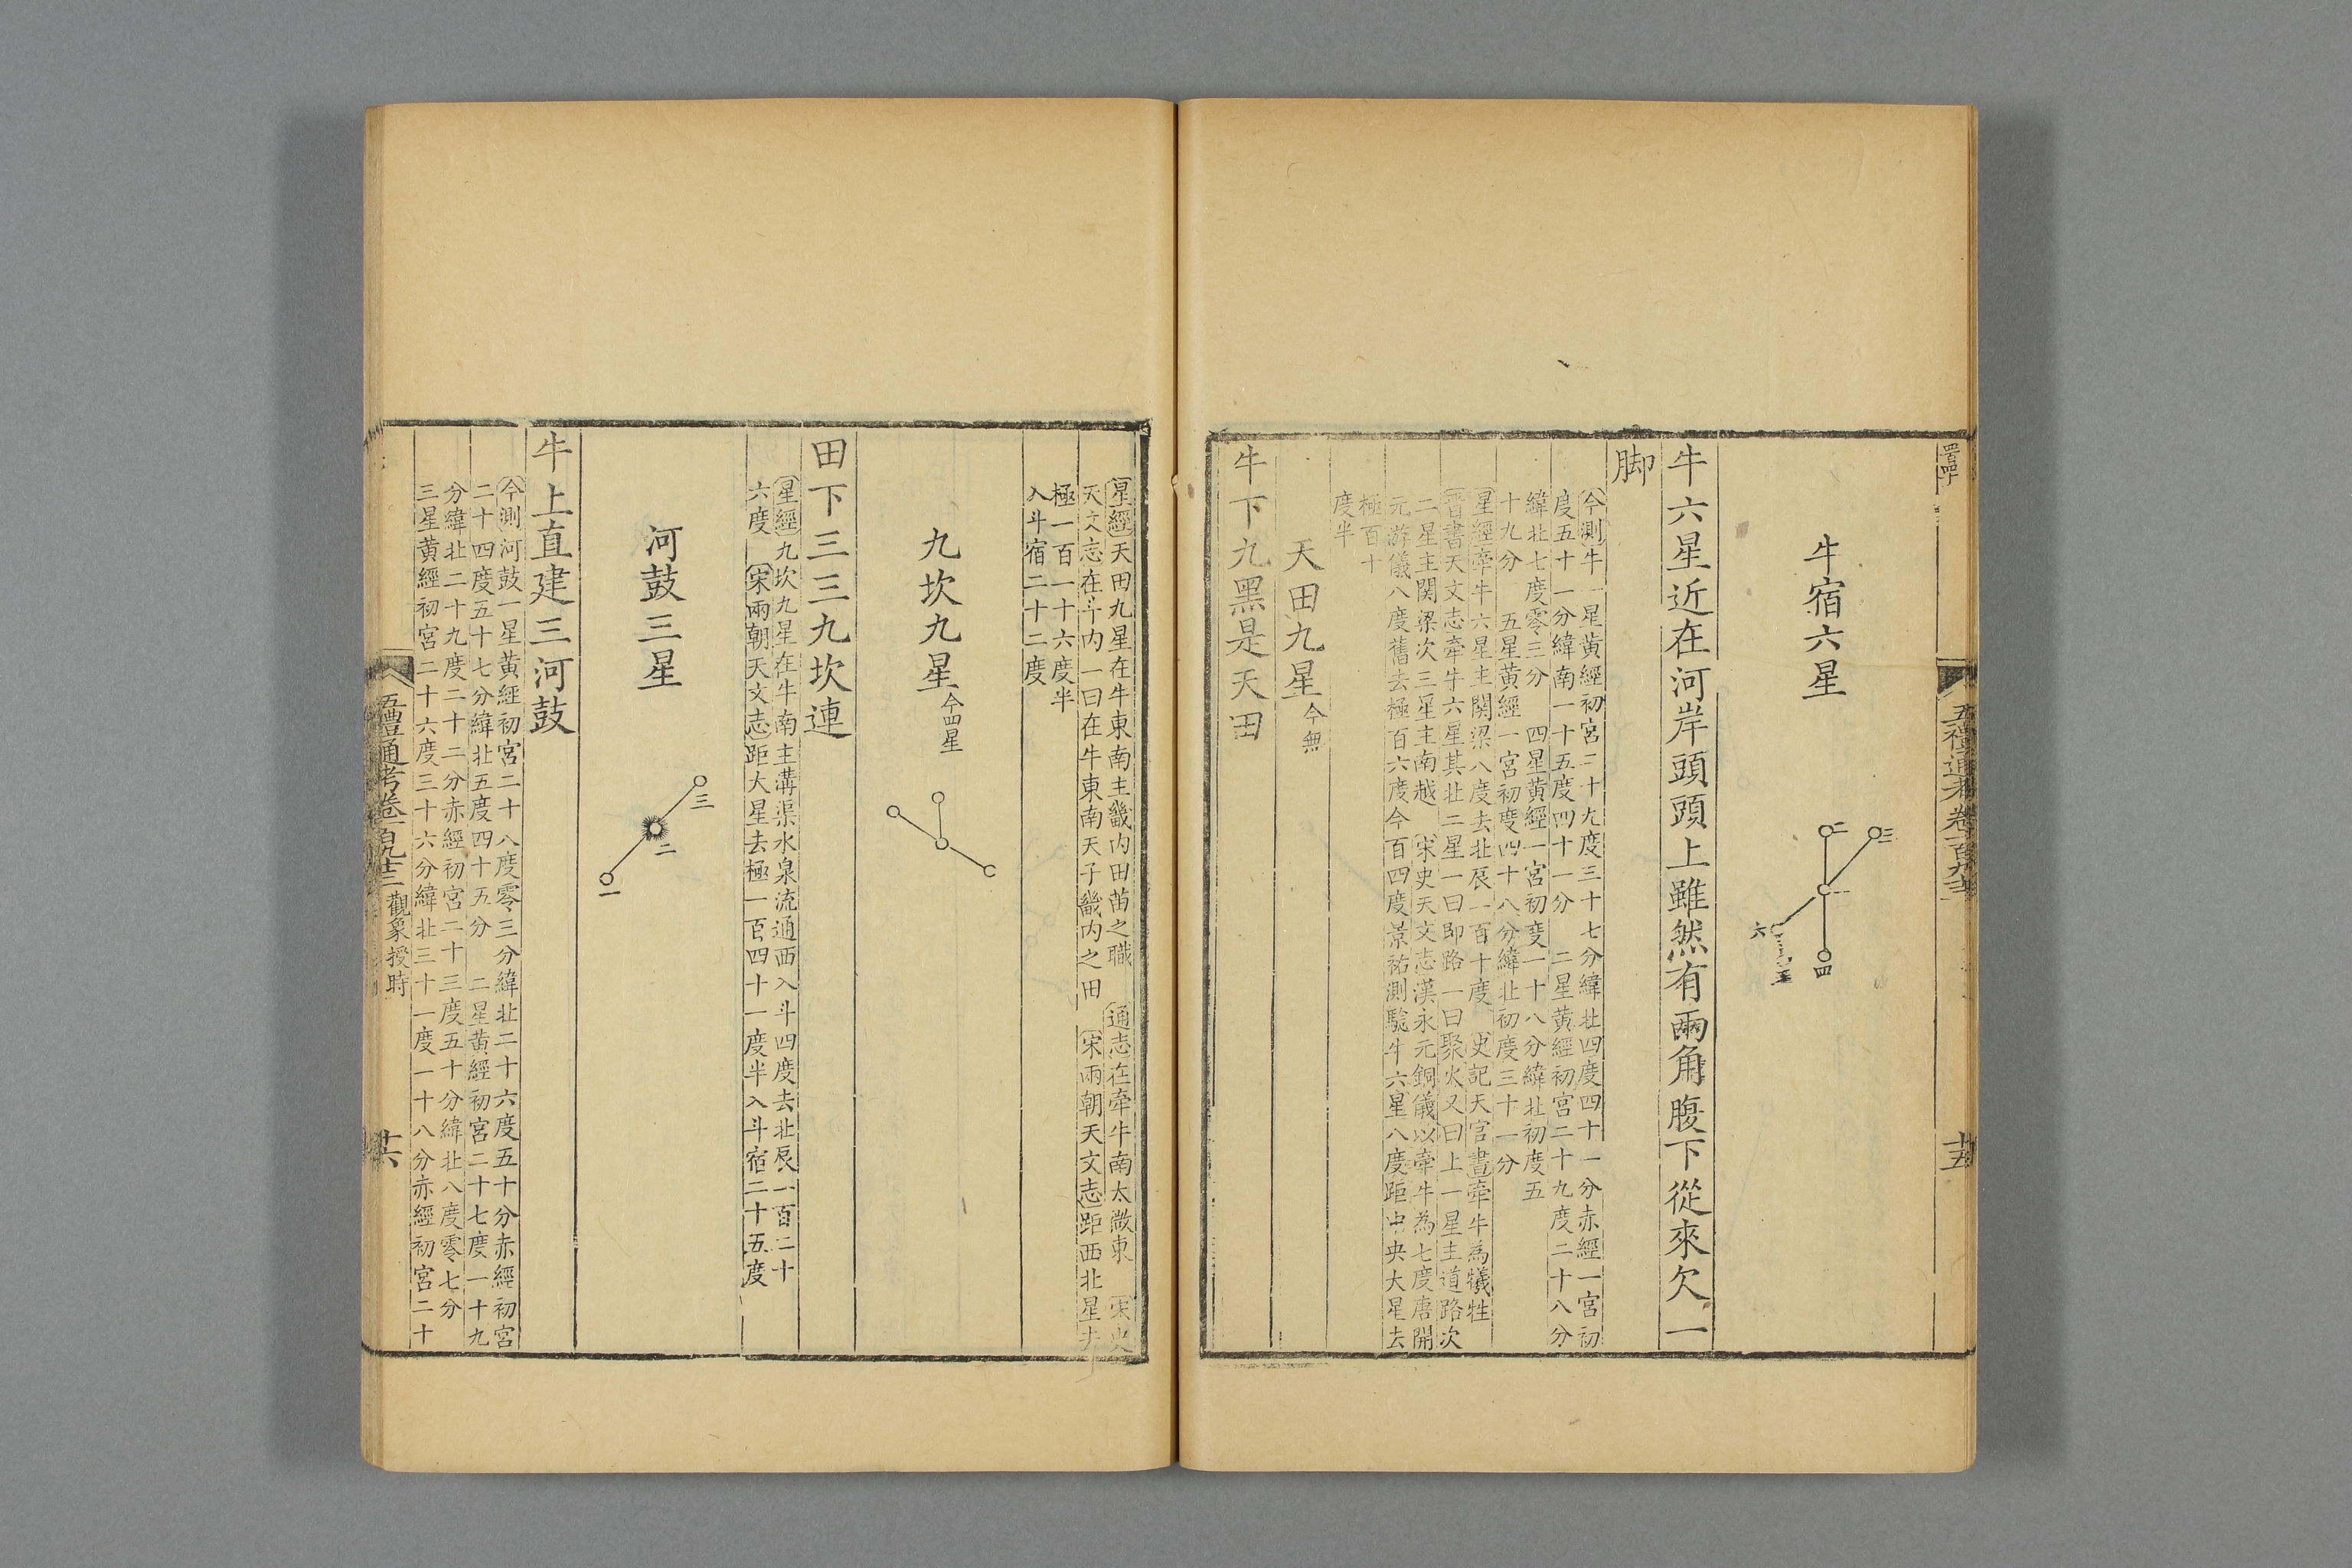 五禮通考卷一百九十三
十五
牛宿六星
一
二
三
四
五
六
牛六星近在河岸頭頭上雖然有兩角腹下從來欠一
脚
今測牛一星黄經初宮二十九度三十七分緯北四度四十一分赤經一宮初
度五十一分緯南一十五度四十一分　二星黄經初宮二十九度二十八分
緯北七度零三分　四星黄經一宮初度一十八分緯北初度五
十九分　五星黄經一宮初度四十八分緯北初度三十一分
星經牽牛六星主関梁八度去北辰一百十度　史記天官書牽牛為犧牲
晉書天文志牽牛六星其北二星一曰即路一曰聚火又曰上一星主道路次
二星主関梁次三星主南越　宋史天文志漢永元銅儀以牽牛為七度唐開
元游儀八度舊去極百六度今百四度景祐測驗牛六星八度距中央大星去
極百十
度半
天田九星今無
牛下九黑是天田
星經天田九星在牛東南主畿内田苗之職　通志在牽牛南太微東　宋史
天文志在斗内一曰在牛東南天子畿内之田　宋兩朝天文志距西北星去
極一百一十六度半
入斗宿二十二度
九坎九星今四星
田下三三九坎連
星經九坎九星在牛南主溝渠水泉流通西入斗四度去北辰一百二十
六度　宋兩朝天文志距大星去極一百四十一度半入斗宿二十五度
河鼓三星
一
二
三
牛上直建三河鼓
今測河鼓一星黄經初宮二十八度零三分緯北二十六度五十分赤經初宮
二十四度五十七分緯北五度四十五分　二星黄經初宮二十七度一十九
分緯北二十九度二十二分赤經初宮二十三度五十分緯北八度零七分
三星黄經初宮二十六度三十六分緯北三十一度一十八分赤經初宮二十
五禮通考卷一百九十三　觀象授時
十六